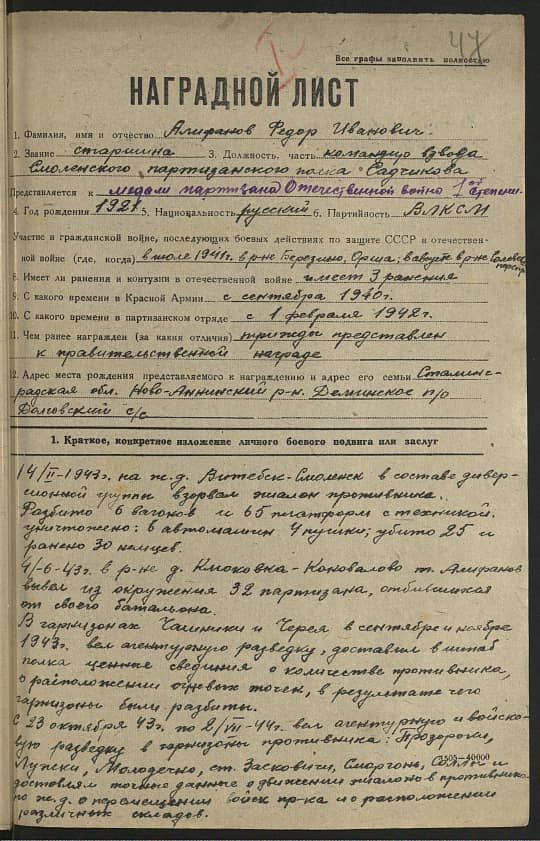 47
Все графы заполнять полностью
НАГРАДНОЙ ЛИСТ
1. Фамилия, имя и отчество Алифанов Федор Иванович.
2. Звание старшина 3. Должность, часть командир взвода
Смоленского партизанского полка Садчикова
Представляется к медали партизана Отечественной войны 1ой степени
4. Год рождения 1921 5. Национальность русский 6. Партийность ВЛКСМ
Участие в гражданской войне, последующих боевых действиях по защите СССР и отечествен-
ной войне (где, когда) в июле 1941г. в р-не Березино, Орша; в августе в р-не
8. Имеет ли ранения и контузии в отечественной войне имеет 3 ранения
9. С какого времени в Красной Армии с сентября 1940г.
10. С какого времени в партизанском отряде с 1 февраля 1942г.
11. Чем ранее награжден (за какия отличия) трижды представлен
к правительственной награде
12. Адрес места рождения представляемого к награждению и адрес его семьи Сталинг-
радская обл. Ново-Аннинский р-н. Деминское п/о
с/с
1. Краткое, конкретное изложение личного боевого подвига или заслуг
14/II-1943г. на ж.д. Витебск-Смоленск в составе дивер-
сионной группы взорвал эшалон противника.
Разбито 6 вагонов и 65 платформ с техникой.
уничтожено: 6 автомашин 4 пушки; убито 25 и
ранено 30 немцев.
4/-6-43г. в р-не д. Клюковка-Коновалово т. Алифанов
вывел из окружения 32 партизана, отбившихся
от своего батальона.
В гарнизонах Чашники и Черея в сентябре и ноябре
1943г. вел агентурную разведку, доставил в штаб
полка ценные сведения о количестве противника,
о расположении огневых точек, в результате чего
гарнизоны были разбиты.
С 23 октября 43г. по 2/VII-44г. вел агентурную и войско-
вую разведку в гарнизоны противника: Прозороки,
Лужки, Молодечно, ст. Засковичи, Сморгонь, Солы и
3505—40000
доставлял точные данные о движении эшалонов противника
по ж.д. о перемещении войск пр-ка и о расположении
различных складов.